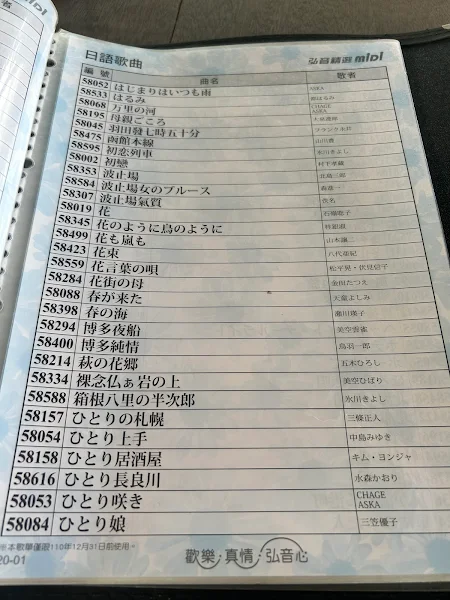 者
日語歌曲
弘音精選 midi
編號 曲名 歌者
58052 はじまりはいつも雨 ASKA
58533 はるみ 都はるみ
58068 万里の河 CHAGE ASKA
58195 母親ごころ
58045 羽田發七時五十分 フランク永井
58475 函館本線 山川豊
58595 初恋列車 氷川きよし
58002 初戀 村下孝藏
58353 波止場 北島三郎
58584 波止場女のブルース 森進一
58307 波止場氣質
58019 花
58345 花のように鳥のように
58499 花も嵐も 山本譲二
58423 花束 八代亜紀
58559 花言葉の唄 松平晃・伏見信子
58284 花街の母 金田たつえ
58088 春が来た 天童よしみ
58398 春の海 瀬川瑛子
58294 博多夜船 美空雲雀
58400 博多純情 鳥羽一郎
58214 萩の花郷 五木ひろし
58334 裸念仏ぁ岩の上 美空ひばり
58588 箱根八里の半次郎 氷川きよし
58157 ひとりの札幌 三條正人
58054 ひとり上手 中島みゆき
58158 ひとり居酒屋 キム・ヨンジャ
58616 ひとり長良川 水森かおり
58053 ひとり咲き CHAGE ASKA
58084 ひとり娘 三笠優子
※本歌單僅限110年12月31日前使用。
20-01
歡樂・真情・弘音心